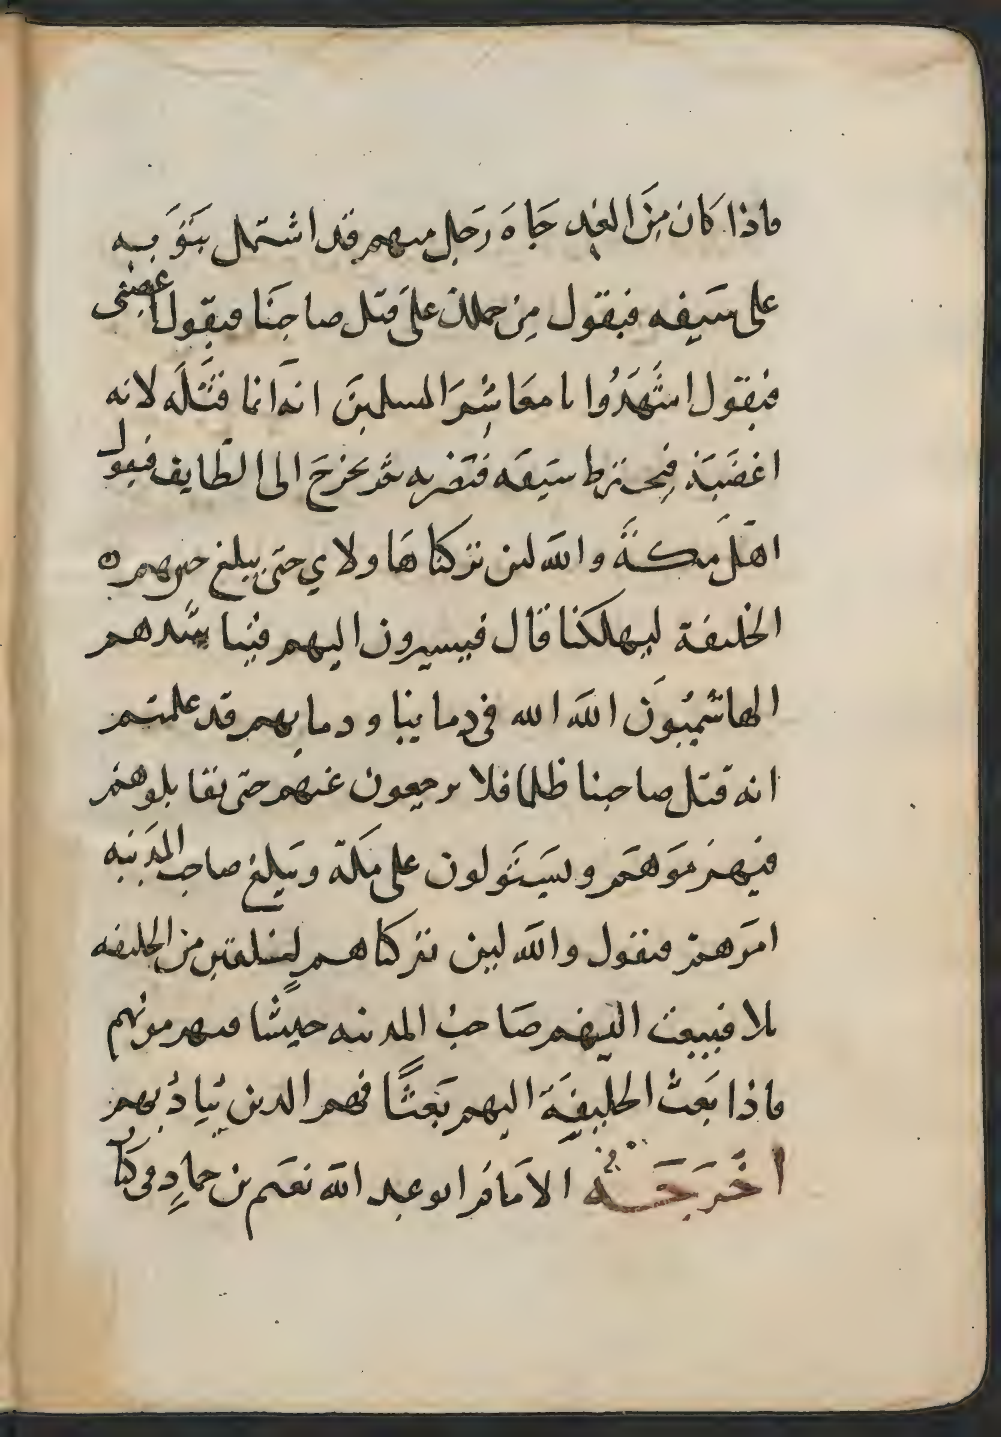 فاذا كان مِنَ الغد جَاءَه رَجل منهم قد اشتمل بثَوبه
على سَيفه فيقول مِن حملك على قتل صاحبَنا فيقول اغضبنى
فيقول اشْهَدُوا يا معَاشِرَ المسلمين انه انما قتَلَه لانه
اغضَبَه فيخترط سَيفَه فتضربه ثم يخرج الى الطايف فيقول
اهلَ مكةَ والله لئن تركنا هَاولاي حتى يبلغ خبرهم
الخليفة ليهلكنا قال فيسيرون اليهم فيناشدهم
الهاشميُّونَ الله الله فى دماينا ودمايهم قد علمتم
انه قتل صاحبنا ظلما فلا يرجعون عنهم حتى يقاتلوهم
فيهزموَهَم ويستَولون على مَكة ويَبلغ صاحب المَدينه
امرَهم فيقول والله لين تركناهم لنلقين من الخليفه
بلا فيبعث اليهم صَاحبُ المدينه جيشًا فيهزمونهم
فاذا بَعث الخليفَة اليهم بَعثًا فهم الذين يُبادُ بهم
اخْرَجَهُ الامَام ابو عبد الله نعَيم بن حمادٍ فى كتا